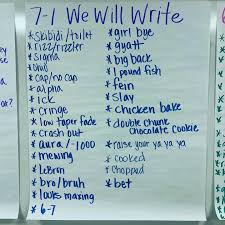 7-1 We Will Write
*skibidi/toilet
*rizz/rizzler
*sigma
*bruh
*cap/no cap
*alpha
*ick
*cringe
*low taper fade
*crash out
*aura/-1000
*mewing
*LeBron
*bro/bruh
*looks maxing
*6-7
*girl bye
*gyatt
*big back
*1 pound fish
*fein
*slay
*chicken bake
*double chunk
chocolate cookie
*raise your ya ya ya
*cooked
*chopped
*bet